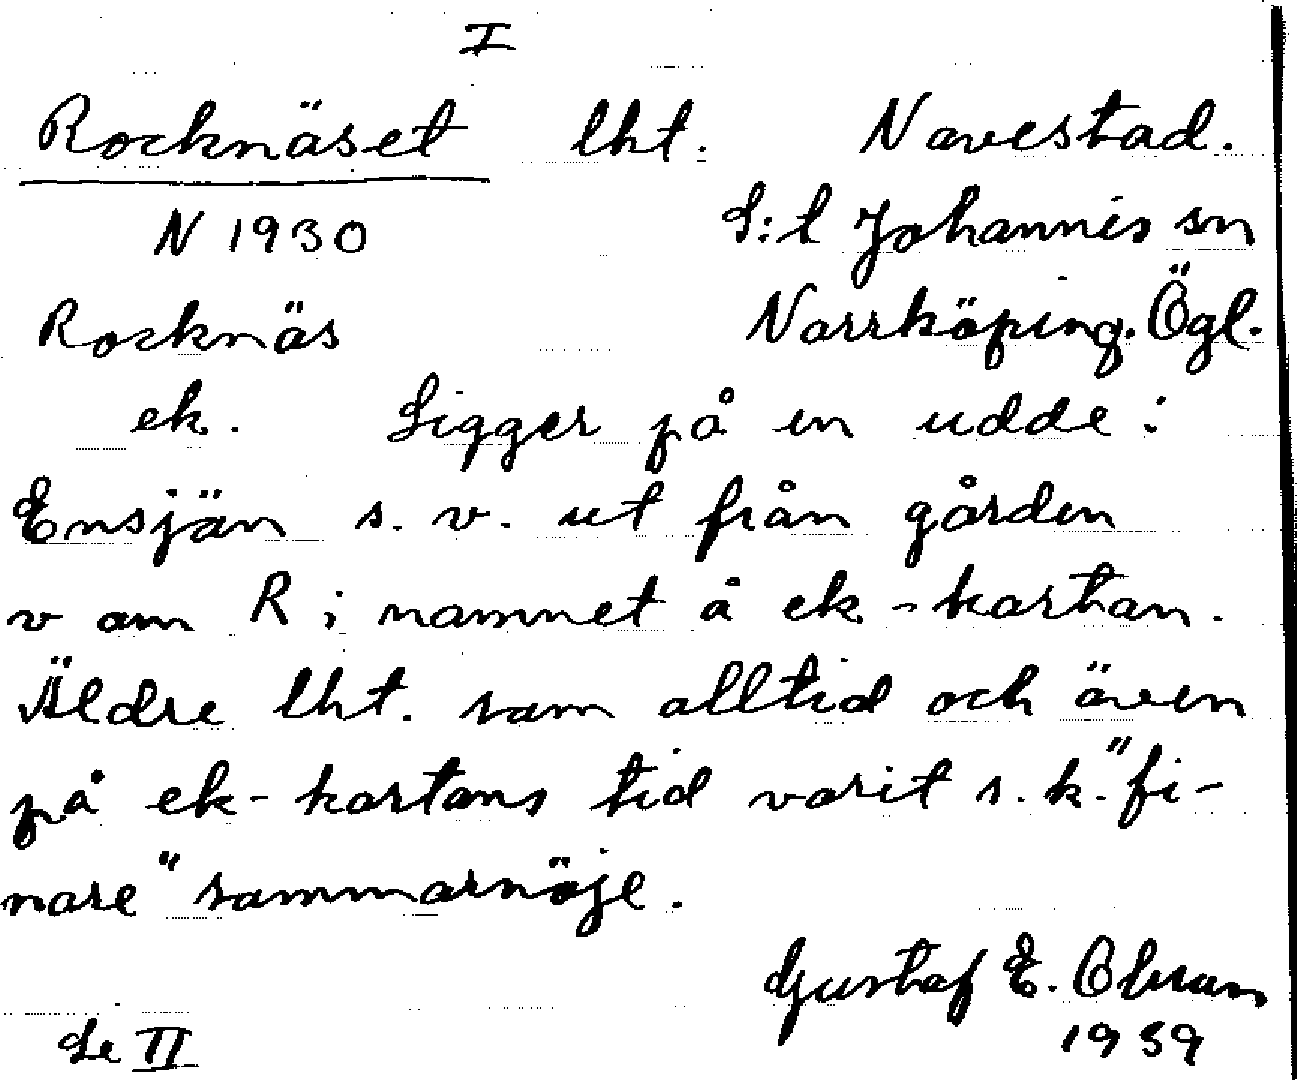 I
Rocknäset lht. Navestad.
N 1930 S:t Johannis sn
Rocknäs Norrköping. Ögl.
ek. Ligger på en udde i
Ensjön s. v. ut från gården
v om R i namnet å ek-kartan.
Äldre lht. som alltid och även
på ek-kartans tid varit s.k. "fi-
nare" sommarnöje.
Gustaf E. Olsson
1939
Se II